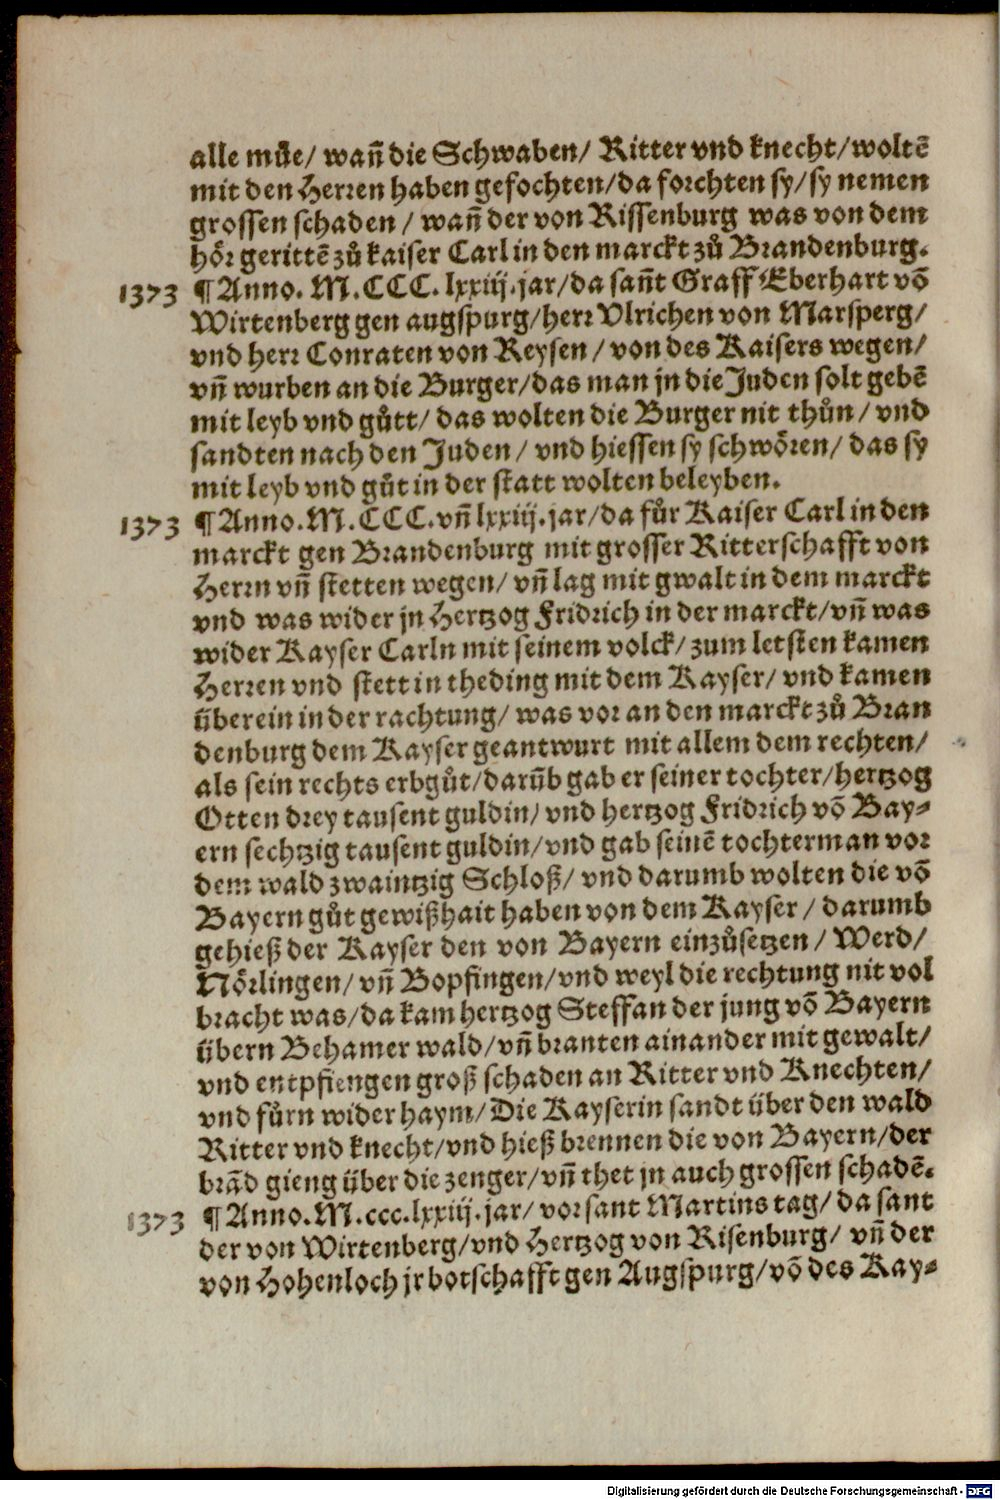 alle můe/ wañ die Schwaben/ Ritter vnd knecht/ woltē
mit den Herren haben gefochten/ da forchten sy/ sy nemen
grossen schaden / wañ der von Rissenburg was von dem
hör gerittē zů kaiser Carl in den marckt zů Brandenburg.
1373 ¶ Anno. M. CCC. lxxiij. jar/ da sañt Graff Eberhart vō
Wirtenberg gen augspurg/ herr Vlrichen von Marsperg/
vnd herr Conraten von Reysen / von des Kaisers wegen/
vñ wurben an die Burger/ das man jn die Juden solt gebē
mit leyb vnd gůtt/ das wolten die Burger nit thůn / vnd
sandten nach den Juden / vnd hiessen sy schwören/ das sy
mit leyb vnd gůt in der statt wolten beleyben.
1373 ¶ Anno. M. CCC. vñ lxxiij. jar/ da fůr Kaiser Carl in den
marckt gen Brandenburg mit grosser Ritterschafft von
Herrn vñ stetten wegen/ vñ lag mit gwalt in dem marckt
vnd was wider jn Hertzog Fridrich in der marckt/ vñ was
wider Kayser Carln mit seinem volck/ zum letsten kamen
Herren vnd stett in theding mit dem Kayser/ vnd kamen
überein in der rachtung/ was vor an den marckt zů Bran
denburg dem Kayser geantwurt mit allem dem rechten/
als sein rechts erbgůt/ darūb gab er seiner tochter/ hertzog
Otten drey tausent guldin/ vnd hertzog Fridrich vō Bay-
ern sechtzig tausent guldin/ vnd gab seinē tochterman vor
dem wald zwaintzig Schloß/ vnd darumb wolten die vō
Bayern gůt gewißhait haben von dem Kayser / darumb
gehieß der Kayser den von Bayern einzůsetzen / Werd/
Nörlingen/ vñ Bopfingen/ vnd weyl die rechtung nit vol
bracht was/ da kam hertzog Steffan der jung vō Bayern
übern Behamer wald/ vñ branten ainander mit gewalt/
vnd entpfiengen groß schaden an Ritter vnd Knechten/
vnd fůrn wider haym/ Die Kayserin sandt über den wald
Ritter vnd knecht/ vnd hieß brennen die von Bayern/ der
brād gieng über die zenger/ vñ thet jn auch grossen schadē.
1373 ¶ Anno. M. ccc. lxxiij. jar/ vor sant Martins tag/ da sant
der von Wirtenberg/ vnd Hertzog von Risenburg/ vñ der
von Hohenloch jr botschafft gen Augspurg/ vō des Kay-
Digitalisierung gefördert durch die Deutsche Forschungsgemeinschaft - DFG